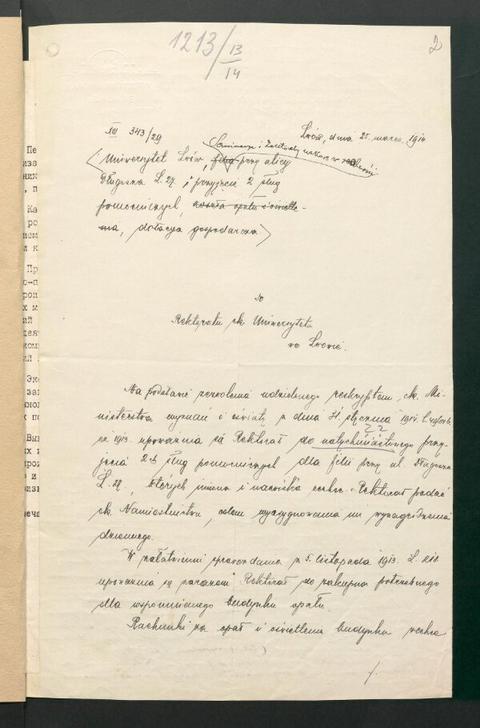 1213/13/14
2
III 343/29
Lwów, dnia 25. marca 1914
Seminarya i Zakłady nauk w
Uniwersytet Lwów, filia przy ulicy
Długosza L. 27, przyjęcie 2 sług
pomocniczych, koszta opału i oświetle-
nia, dotacja gospodarcza
Do
Rektoratu ck Uniwersytetu
we Lwowie.
Na podstawie zezwolenia udzielonego reskryptem ck. Mi-
nisterstwa wyznań i oświaty z dnia 31. stycznia 1914. L.
ex 1913. upoważnia się Rektorat do natychmiastowego przy-
jęcia 2-ch sług pomocniczych dla filii przy ul. Długosza
L. 27, których imiona i nazwiska zechce Rektorat podać
ck Namiestnictwu, celem wyasygnowania im wynagrodzenia
dziennego.
W załatwieniu sprawozdania z 5. listopada 1913. L.
upoważnia się zarazem Rektorat do zakupna potrzebnego
dla wspomnianego budynku opału.
Rachunki za opał i oświetlenie budynku zechce